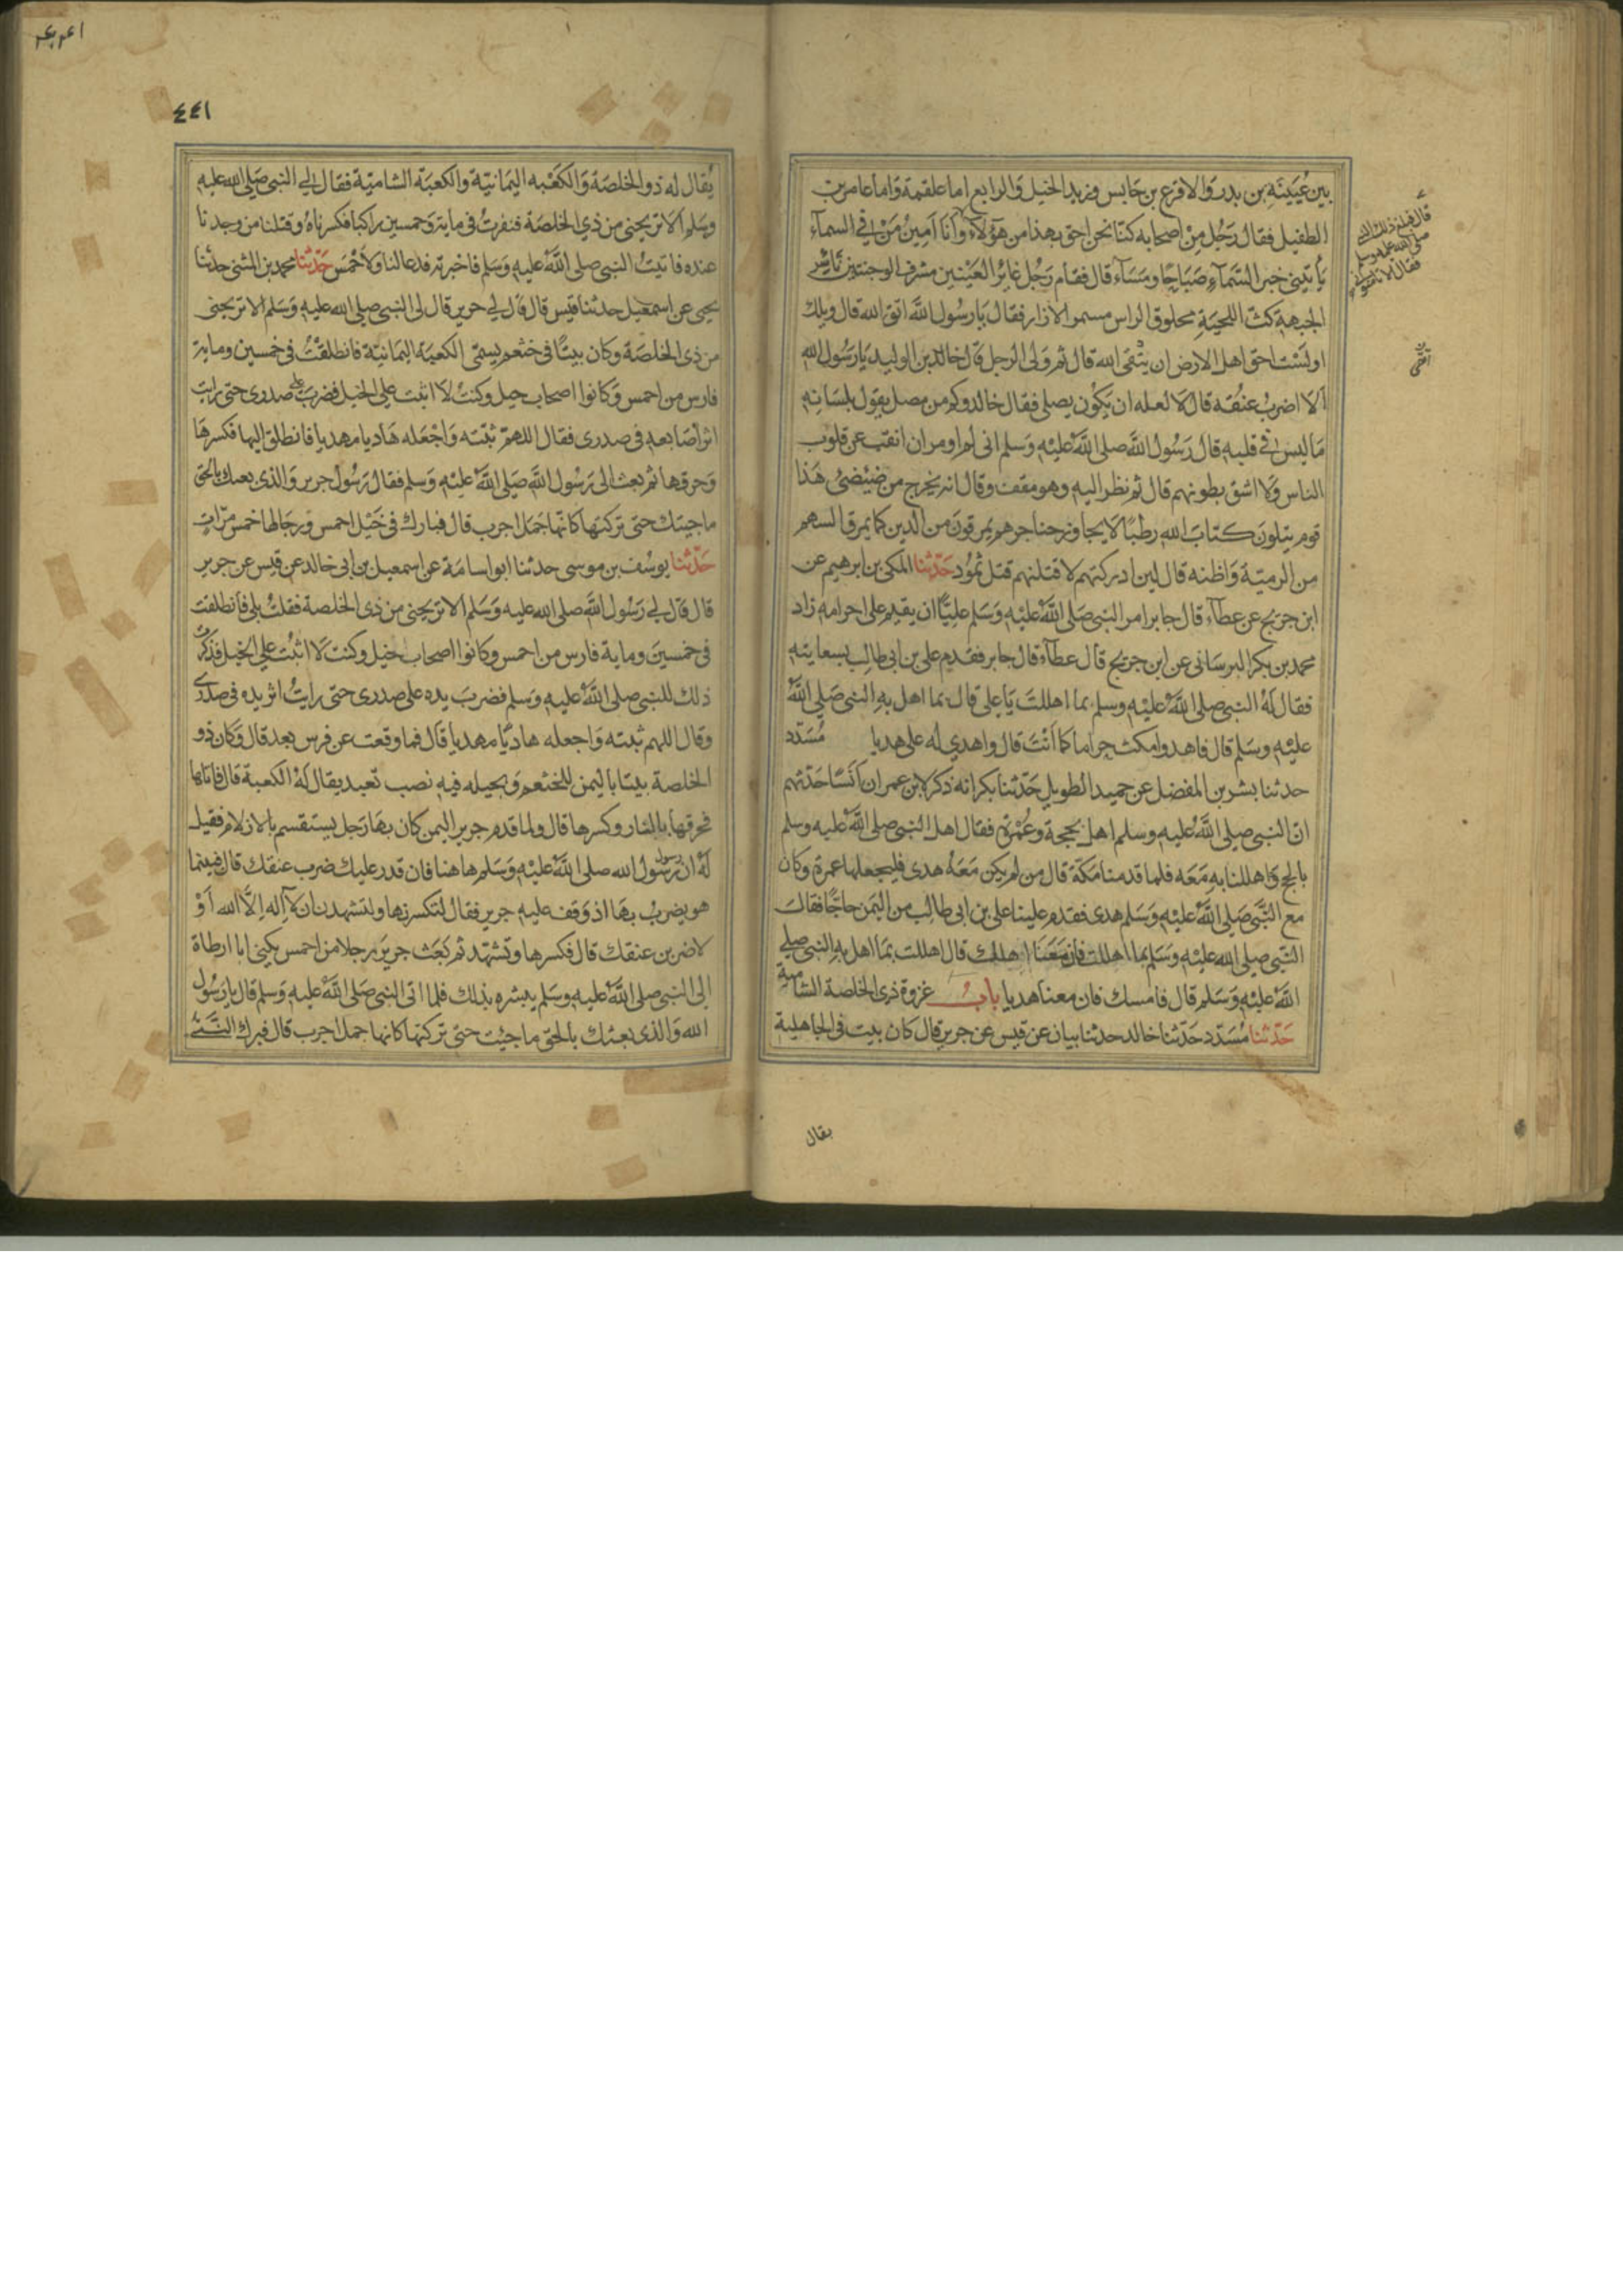 بين عُيَيْنَةِ بن بدر وَالاقرع بن حَابس وزيد الخيل وَالرابع اما علقمة وَاما عامر بن
الطفيل فقال رَجُل مِنْ اصحابه كنّا نحن احق بهذا من هَؤلَاءِ وَأنَا أمِينُ مَنْ في السماَء
يَأتيني خبر السَّمآءِ صَبَاحًا ومَسَآء قال فقام رَجُل غائِر العَيْنين مشرف الوجنتين نَاشِز
الجبهة كث اللحيَةِ محلوق الراس مسمر الازار فقال يَا رسُول اللَّه اتق اللّه قال ويلك
اولَسْت احق اهل الارض ان يتّقى الله قال ثم وَلى الرجل قال خالد بن الوليد يَا رَسُول الله
ألا اضربُ عنقه قال لا لعله ان يَكوُن يصلى فقال خالد وكم من مصل يقول بلسَانه
مَا ليس في قلبه قال رَسُول اللَّه صلى اللَّه عليْه وَسلم انى لم اومر ان انقب عن قلوب
الناس وَلا اشق بطونهم قال ثم نظر اليه وهو مقف وقال انه يخرج من ضئضئ هَذا
قوم يتلونَ كتابَ الله رطبًا لَا يجاوز حناجرهم يمرقونَ من الدين كما يمرق السهم
من الرميّة وَاظنه قال لين ادركتهم لاقتلنهم قتل ثموُد حَدّثنا المكى بن ابرهيم عن
ابن جريج عن عطآء قال جابر امر النبى صَلى اللَّه عليْه وَسَلم عليًّا ان يقيم على احرامه زاد
محمد بن بكر البرسَانى عن ابن جريج قال عطآء قال جابر فقدم على بن ابى طالب بسعايته
فقال لَهُ النبى صلى اللَّه عليْه وسلم بما اهللتَ يَا على قال بما اهل بهِ النبى صَلى اللَّه
عليْه وسَلم قال فاهد وامكث حراما كما اَنْتَ قال واهدي له على هديا مُسَدّد
حدثنا بشر بن المفضل عن حميد الطويل حَدّثنا بكر انه ذكر لابن عمر ان اَنَسًا حَدّثهم
انّ النبى صلى اللَّه عليه وسلم اهل بحجة وعُمْرة فقال اهل النبى صلى اللَّه عليه وسلم
بالحج وَاهللنا بهِ مَعَه فلما قدمنا مكّة قال من لم يكن مَعَهُ هدى فليجعلها عمرة وكان
مع النَّبى صَلى اللَّه عليْه وَسَلم هدى فقدم علينا على بن ابى طالِب من اليَمن حاجًّا فقال
النَّبى صلى الله عليْه وسَلم بما اهللت فان مَعَنَا اهلك قال اهللت بمَا اهل به النبى صلى
اللَّه عليْه وَسَلم قال فامسك فان معنا هديا بابُ غزوة ذى الخلصة الشامية
حَدّثنا مُسَدّد حَدّثنا خالد حدثنا بيان عن قيس عن جرير قال كان بيت فى الجاهلية
قال فبلغ ذلك النبى
صلى الله عليه وسلم
فقال الا تامنونى
يقال
٤٤١
يُقال له ذو الخلصَة وَالكعْبه اليمَانيّة والكعبَة الشاميّة فقال لي النبى صَلى الله عليه
وسَلم الا تريحنى من ذي الخلصَة فنفرتُ فى ماية وَخمسين راكبا فكسرناهُ وقتلنا من وجدنا
عنده فاتيتُ النبى صلى اللَّه عليه وَسَلم فاخبرته فدعا لنا ولاَحْمَس حَدّثنا محمد بن المثنى حدّثنا
يحيى عن اسمعيل حدثنا قيس قال قال لي جرير قال لى النبى صلى الله عليه وَسَلم الا تريحنى
من ذى الخلصَة وكان بيتًا فى خثعم يسمّى الكعبَة اليمانيّة فانطلقْتُ فى خمسين وماية
فارس من احمس وَكانوا اصحاب خيل وكنتْ لا اثبت على الخيل فضربَ على صدرى حتى رايت
اثر اصَابعه فى صدرى فقال اللهمّ ثبّته وَاجْعَله هَاديا مهديا فانطلق اليها فكسرهَا
وَحرقها ثم بعث الى رَسُول اللَّه صَلى اللَّه عليْه وَسلم فقال رَسُول جرير وَالذى بعثك بالحق
ما جيتك حتى تركتها كانّها جَمَل اجرب قال فبارك فى خَيْل احمس ورجالها خمس مرّات
حَدّثنا يوسُف بن موسى حدثنا ابو اسامَة عن اسمعيل بن ابى خالد عن قيس عن جرير
قال قال لي رَسُول اللَّه صلى الله عليه وَسَلم الا تريحنى من ذى الخلصة فقلتُ بلى فانطلقت
فى خمسينَ وماية فارس من احمس وكانوا اصحاب خيل وكنت لا اثبُت على الخيل فذكرت
ذلك للنبى صلى اللَّه عليه وَسَلم فضربَ يده على صدرى حتى رايتُ اثر يده فى صدرى
وقال اللهم ثبته وَاجعله هاديًا مهديا قال فما وقعت عن فرس بعد قال وَكان ذو
الخلصة بيتا باليمن لخثعم وَبجيله فيه نصب تعبد يقال لَهُ الكعبة قال فاتاها
فحرقها بالنار وكسرها قال ولما قدم جرير اليمن كان بهَا رَجل يستقسم بالازلام فقيل
لَهُ ان رسُول رسُول الله صلى اللَّه عليْه وَسَلم هاهنا فان قدر عليك ضرب عنقك قال فبينما
هو يضربُ بهَا اذ وَقف عليه جرير فقال لتكسرنها ولتشهدنّ ان لَا اله اِلاَّ الله أوْ
لاضربن عنقك قال فكسرها وتشهّد ثم بَعَث جرير رجلا من احمس يكنى ابا ارطاة
الى النبى صلى اللَّه عليه وسَلم يبشره بذلك فلما اتى النبى صَلى اللَّه عليه وَسلم قال يا رَسُول
الله وَالذى بعثك بالحق ما جئت حتى تركتها كانها جمل اجرب قال فبرك النَّبىّ